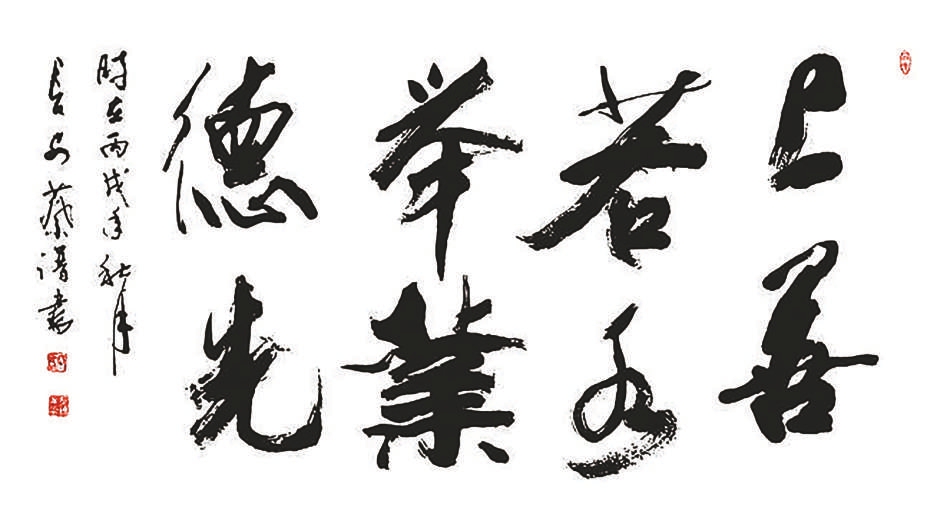 上善
若水
举業
德先
時在丙戌年秋月
長安蔡譜書